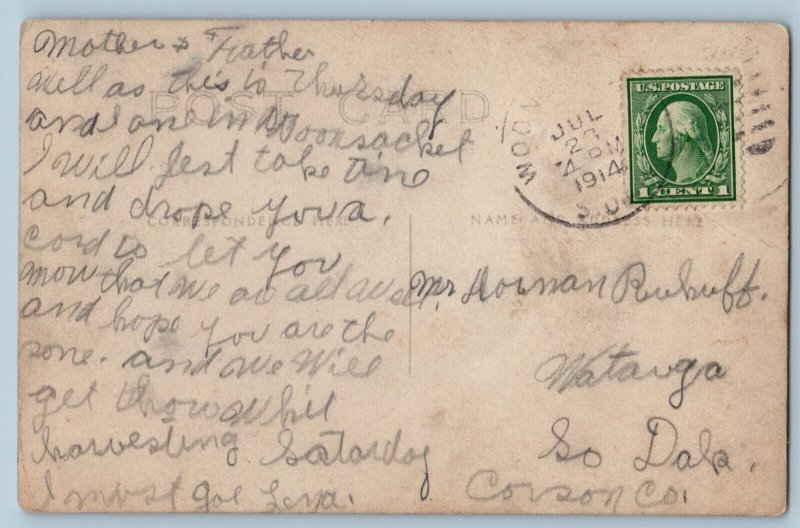 Mother & Frather
well as this is Thursday
and I one in Woonsacket
I will jest take time
and drope you a,
Cord to let you
now that we ar all well
and hope you are the
sone. and we will
get throw whit
harvesting Satarday
I must goe Lena.
POST CARD
CORRESPONDENCE HERE
NAME AND ADDRESS HERE
WOON
JUL
4 PM
1914
S.D.
U.S. POSTAGE
1 CENT 1
Mr Herman
Watauga
So Dak.
Corson Co.